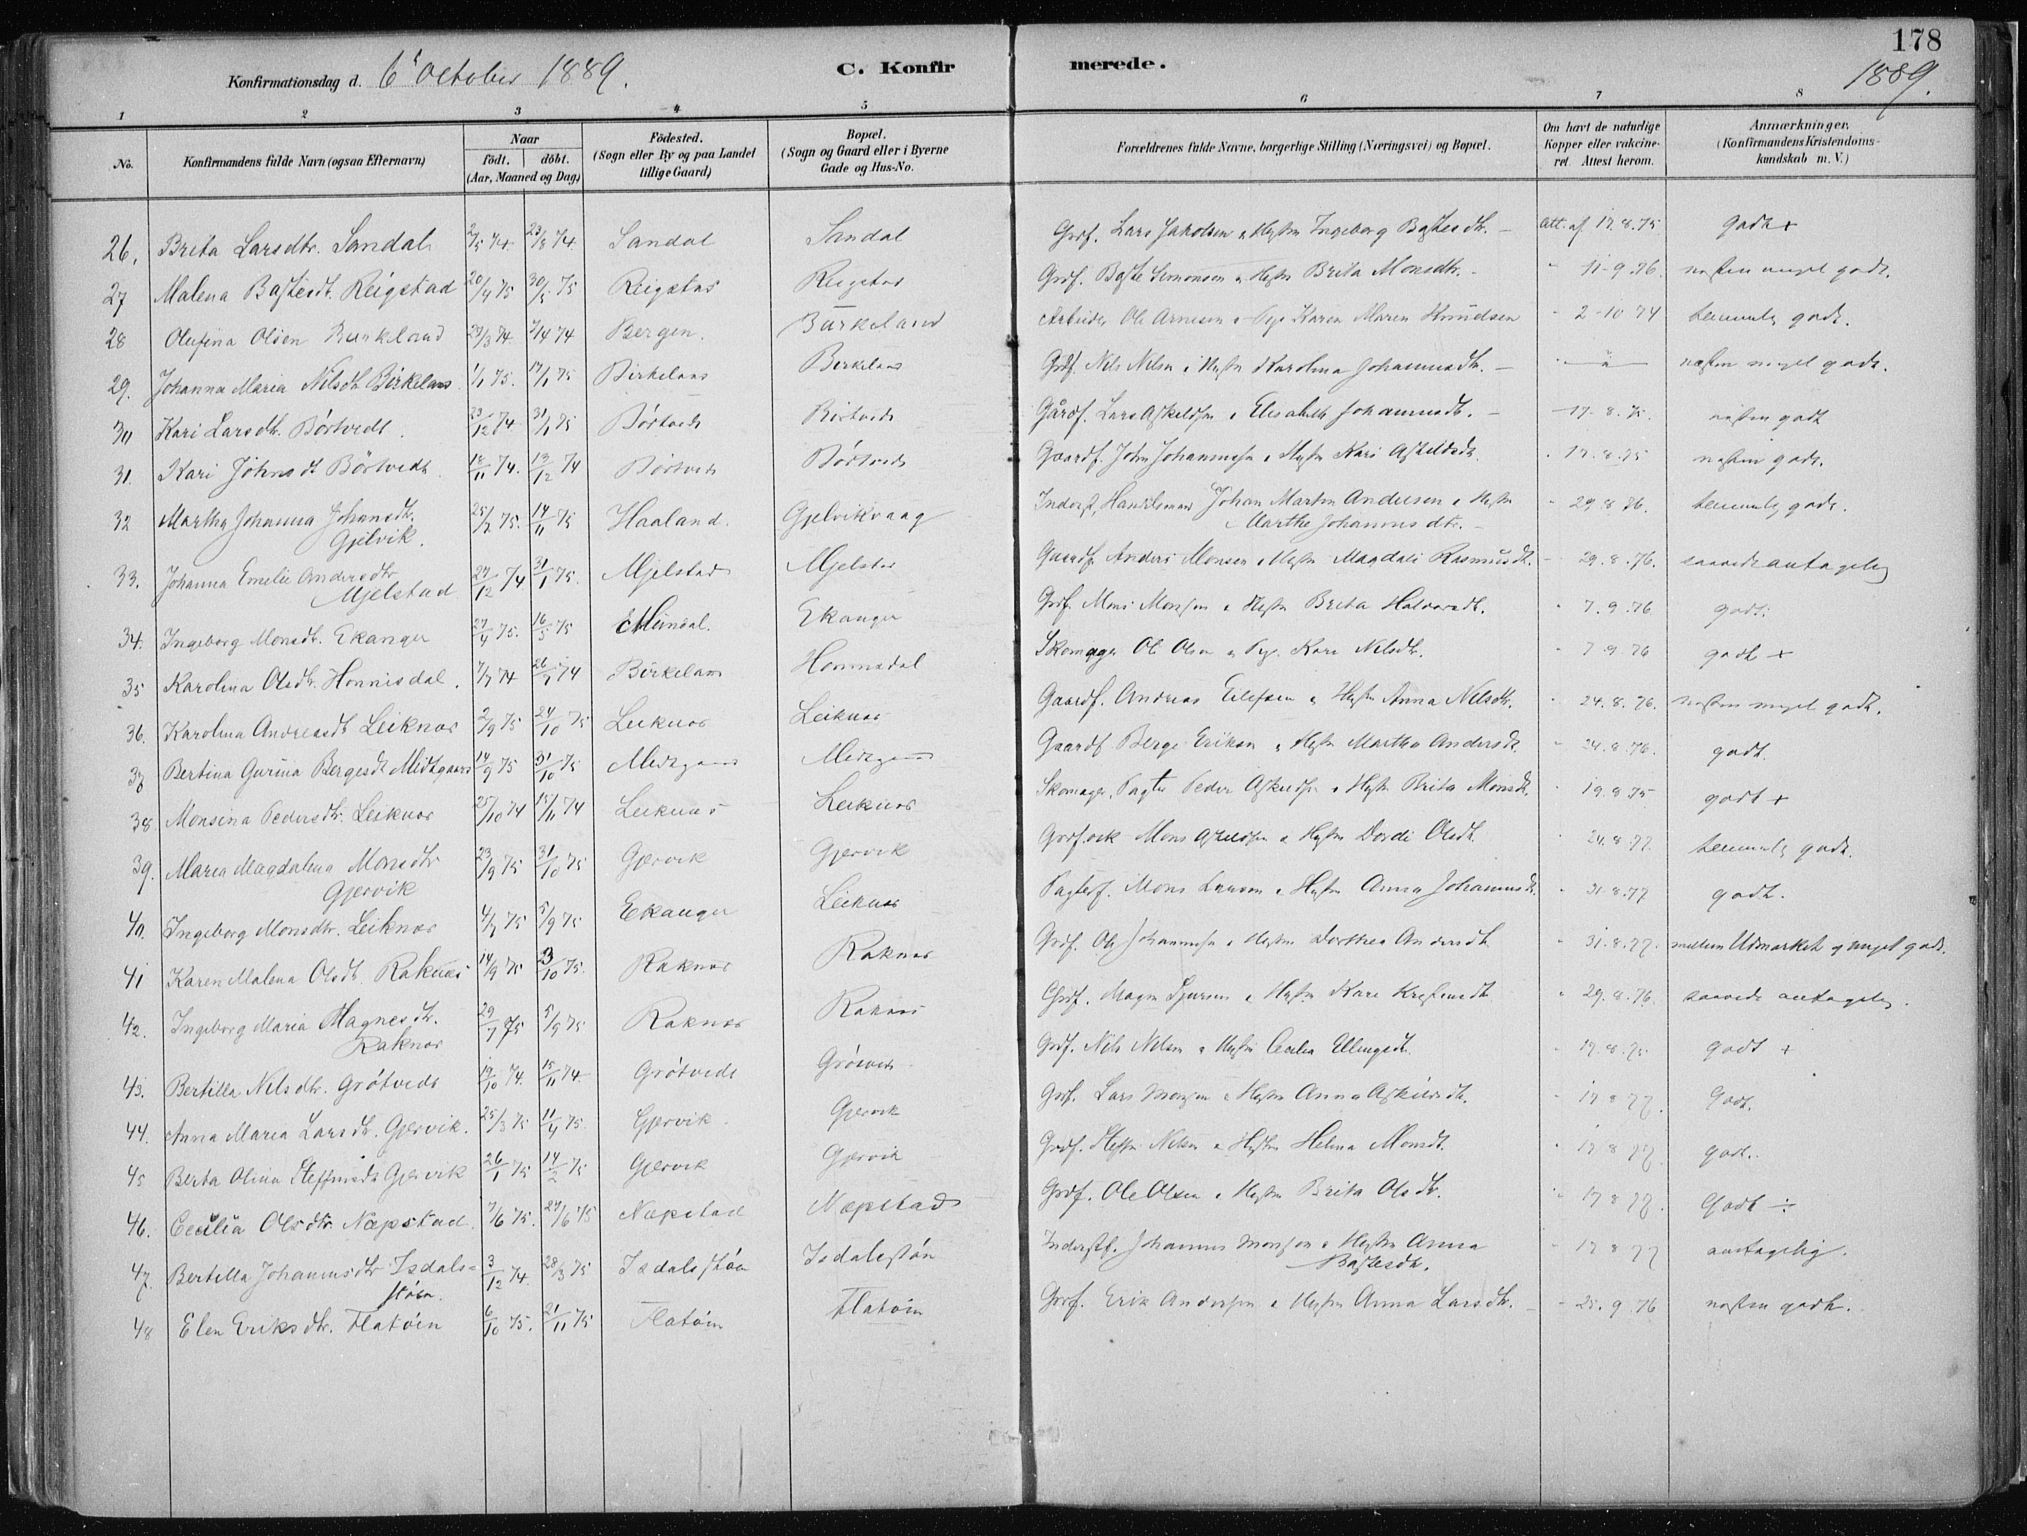 178
Konfirmationsdag d. 6 October 1889. C. Konfirmerede. 1889.
1 2 3 4 5 6 7 8
No. Konfirmandens fulde Navn (ogsaa Efternavn) Naar født. døbt. (Aar, Maaned og Dag) Födested. (Sogn eller By og paa Landet tillige Gaard) Bopæl. (Sogn og Gaard eller i Byerne Gade og Hus-No. Forældrenes fulde Navne, borgerlige Stilling (Næringsvei) og Bopæl. Om havt de naturlige Kopper eller vakcineret. Attest herom. Anmærkninger. (Konfirmandens Kristendomskundskab m. V.)
26. Brita Larsdtr. Sandal 2/5 74 23/5 74 Sandal Sandal Grdf. Lars Jakobsen Ingeborg Bastesdtr. Att. af 17.8.75 godt +
27 Malena Bastesdt. Reigstad 20/4 75 30/5 75 Reigstad Reigstad Grdf. Baste Simonsen Brita Monsdtr. 11-9.76 næsten meget godt.
28 Olufina Olsen Burkeland 23/3 74 7/14 74 Bergen. Burkeland Arbeider Ole Arnesen Karen Maren Knudsen 2-10 74 temmelig godt.
29. Johanna Maria Nilsdt. Birkeland 1/1 75. 17/1 75 Birkeland Birkeland Grdf. Nils Nilsen Karolina Johannesdtr. næsten meget godt.
30 Kari Larsdtr. Børtvedt 23/12 74 31/1 75 Børtvedt Börtvedt Gårdf. Lars Askeldsen Elisabeth Johannesdtr. 17.8.75. næsten godt
31. Kari Johnsdt. Börtvedt 12/11 74. 13/12 74 Børtvedt Børtvedt Gaardf. John Johannesen Kari Askeldsdt. 17.8.75 næsten godt.
32 Martha Johanna Johansdtr. Gjelvik. 25/7 75. 14/11 75 Haaland. Gjelvikvaag Inderst, Handelsmand Johan Martin Andersen Marthe Johannesdtr. 29.8 76. temmelig godt.
33. Johanna Emelie Andersdtr. Mjelstad 27/12 74 31/1 75. Mjelstad Mjelstad Gaardf. Anders Monsen Magdali Rasmusdt. 29.8.76. saavidt antagelig
34. Ingeborg Monsdt. Ekanger 27/4 75. 16/5 75 Meindal. Ekanger Grdf. Mons Monsen Brita Halvorsdt. 7.9.76 godt.
35 Karolina Olsdtr. Honnisdal. 7/7 74 26/7 74 Birkeland Honnesdal Skomager Ole Olsen Kari Nilsdtr. 7.9.76 godt +
36. Karolina Andreasdt. Leiknes 2/9 75 24/10 75 Leiknes Leiknes Gaardf. Andreas Eilefsen Anna Nilsdtr. 24.8.76. næsten meget godt.
37 Bertina Gurina Bergesdt. Midtgaard 14/9 75 31/10 75 Midtgaard Midtgaard Gaardf. Berge Eriksen Martha Andersdt. 24.8.76. godt.
38. Monsina Pedersdtr. Leiknes 25/10 74 15/11 74 Leiknes Leiknes Skomager Peder Askeldsen Brita Monsdt. 19.8.75 godt +
39. Maria Magdalena Monsdtr. Gjervik 23/9 75 31/10 75 Gjervik Gjervik Mons Dordi Olsdt. 24.8.77. temmelig godt.
40. Ingeborg Monsdtr. Leiknes 4/7 75 5/9 75 Ekanger Leiknes Mons Larsen Anna Johannesdt. 31.8.77 godt.
41 Karen Malena Olsdt. Raknes 14/9 75 3/10 75. Raknes Raknes Grdf. Ole Johannesen Dorthea Andersdt. 31.8.77. mellem Udmærket og meget godt.
42. Ingeborg Maria Magnesdtr. Raknes 29/7 75 5/9 75 Raknes Raknes Grdf. Magne Sjursen Kari 29.8.76. saavidt antagelig.
43. Bertilla Nilsdtr. Grötvedt 19/10 74. 15/11 74. Grötvedt Grötvedt Grdf. Nils Nilsen Cecilia Ellingsdt. 17.8.75 godt +
44. Anna Maria Larsdtr. Gjervik. 25/3 75 11/4 75. Gjervik Gjervik Grdf. Lars Monsen Anna Askeldsdt. 17 8 77. Godt.
45 Berta Olina Steffensdt. Gjervik 26/1 75 14/2 75 Gjervik Gjervik Grdf. Steffen Nilsen Helena Monsdt. 17 8 77. godt.
46. Cecilia Olsdtr. Næpstad 7/6 75. 27/6 75 Næpstad Næpstad Grdf. Ole Olsen Brita Olsdtr. 17 8 77. Godt ÷
47. Bertilla Johannesdtr. Isdalsstøen. 3/12 74. 28/3 75 Isdalsstøen Isdalsstøn Inderstf. Johannes Monsen Anna Bastesdtr. 17 8 77 antagelig.
48 Elen Eriksdtr. Flatøen 6/10 75. 21/11 75 Flatøen Flatøin Grdf. Erik Andersen Anna Larsdtr. 25.9.76 næsten godt.